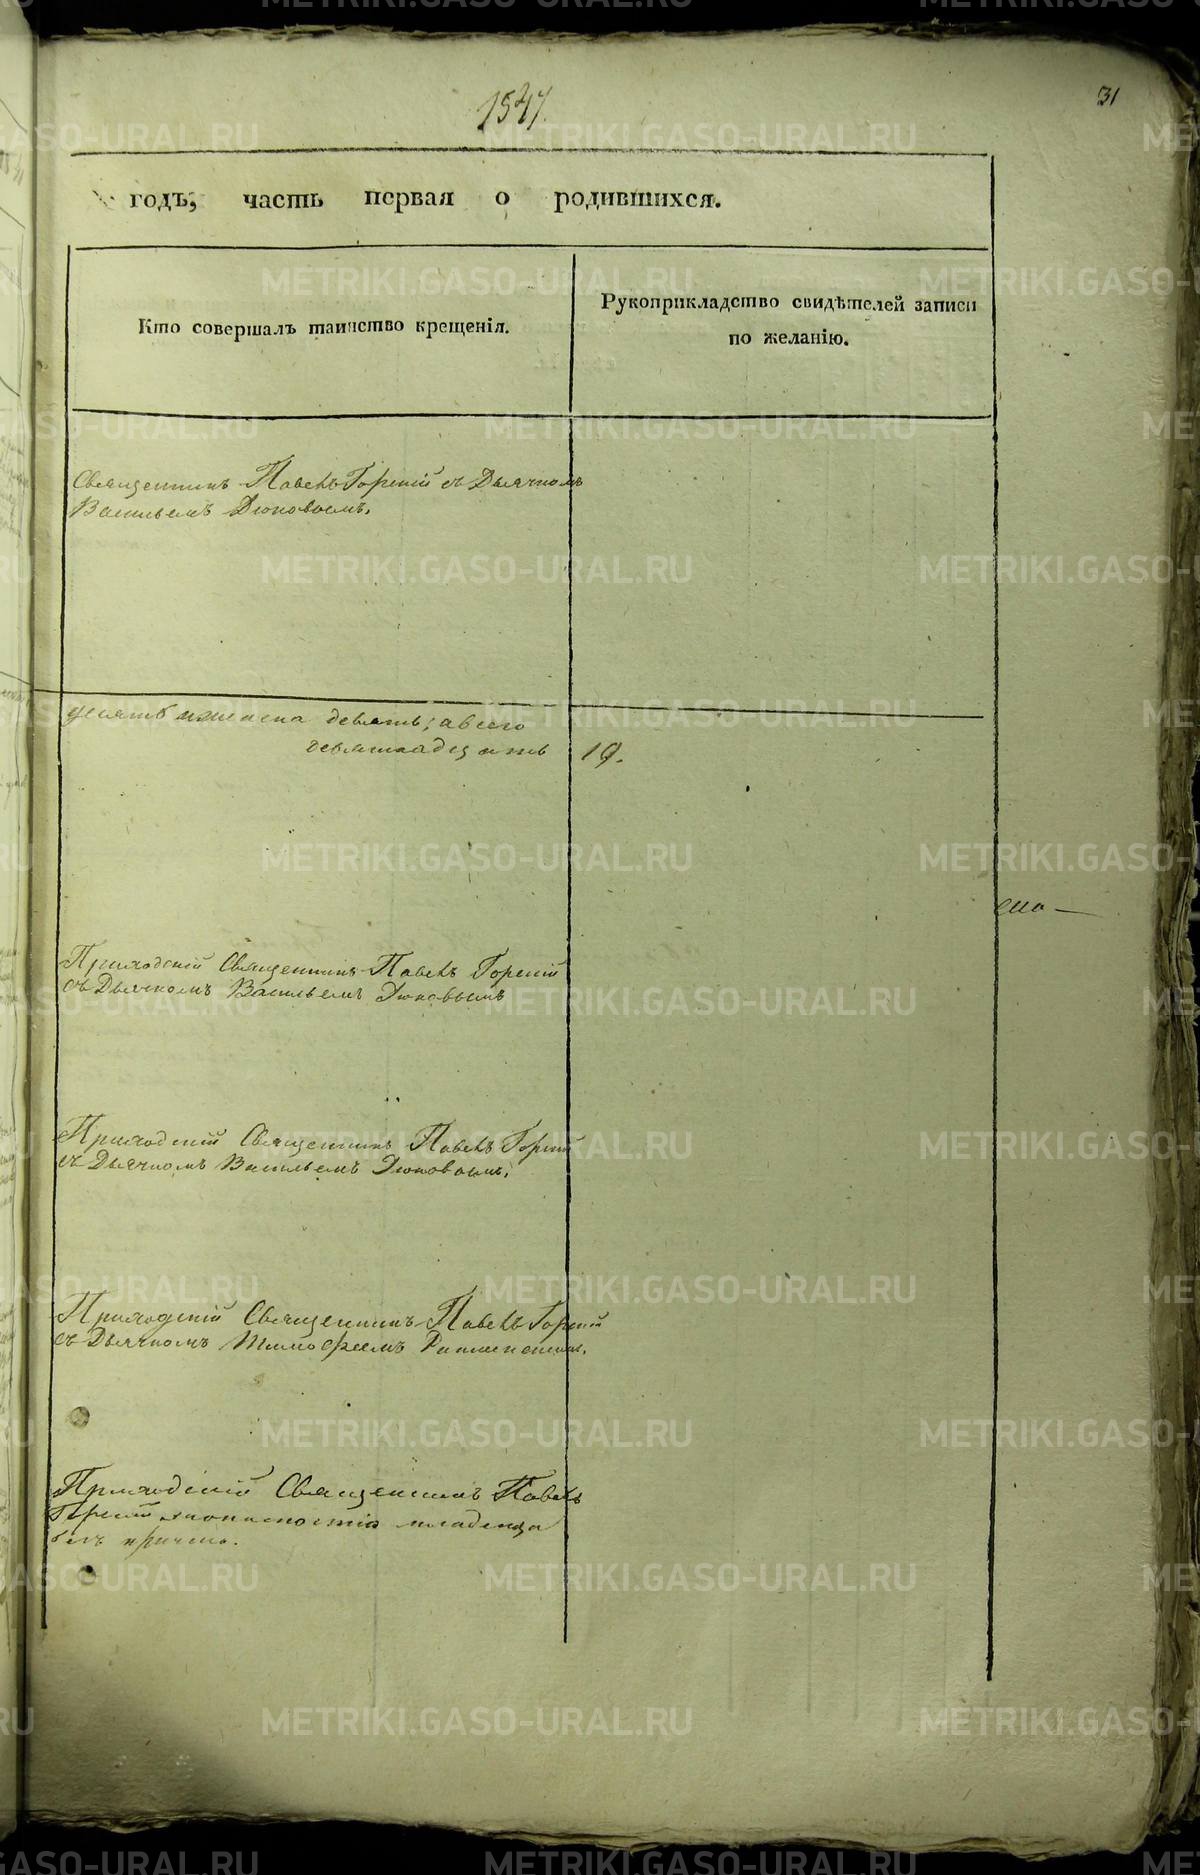 31
годъ, часть первая о родившихся.
Кто совершалъ таинство крещенія.
Рукоприкладство свидѣтелей записи
по желанію.
Священникъ Павелъ Горскій съ Дьячкомъ
Васильемъ Дюковымъ.
десять женска девять; а всего
девятнадцать 19.
Приходскій Священникъ Павелъ Горскій
съ Дьячкомъ Васильемъ Дюковымъ
Приходскій Священникъ Павелъ Горскій
съ Дьячкомъ Васильемъ Дюковымъ.
Приходскій Священникъ Павелъ Горскій
съ Дьячкомъ Тимофеемъ
Приходскій Священникъ Павелъ
Горскій младенца
безъ причта.
METRIKI.GASO-URAL.RU